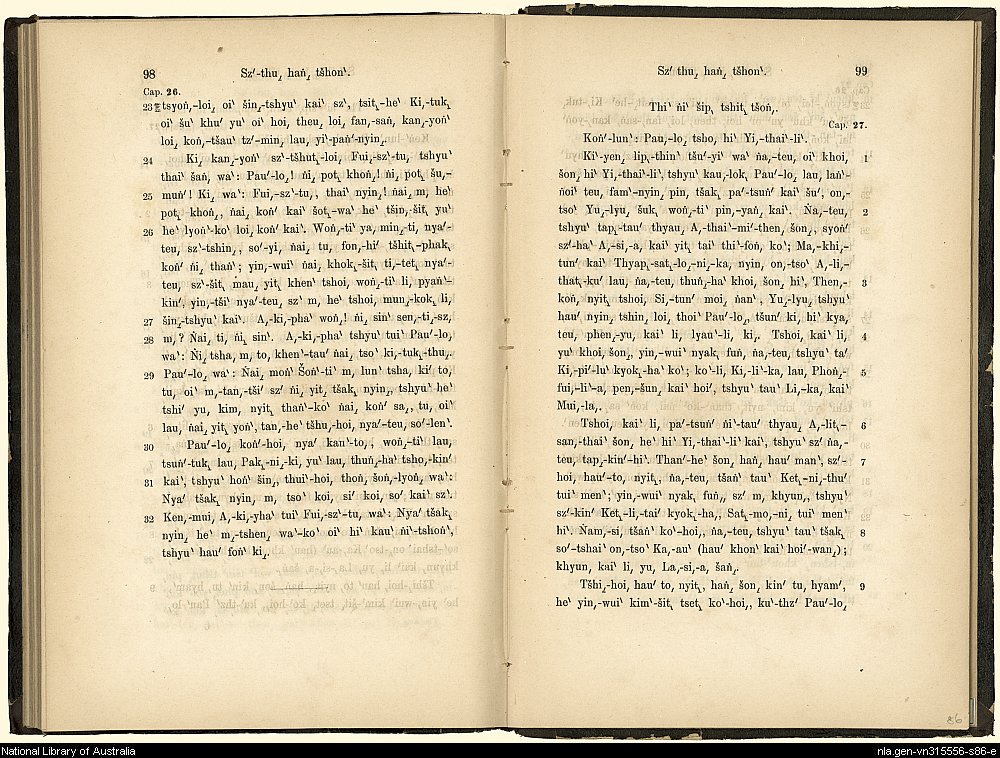 98
Szʹ-thu˛ haṅ˛ tšhonˋ.
Cap. 26.
23 tsyoṅ˛-loi˛ oiˋ šin˛-tshyuˋ kaiˋ szˋ, tsit˛-he Ki˛-tuk˛
oiˋ šuˋ khuʹ yuˋ oiˋ hoi, theu˛ loi˛ fan˛-saṅ, kan˛-yoṅˋ
loi˛ koṅ˛-tšauˋ tzʹ-min˛ lau, yiˋ-paṅʹ-nyin˛.
24 Ki˛ kan˛-yoṅˋ szˋ-tšhut˛-loi˛ Fui˛-szˋ-tu, tshyuˋ
thaiˋ šaṅ, waˋ: Pauʹ-lo˛! ṅi˛ pot˛ khoṅ˛! ṅi˛ pot˛ šu˛-
25 muṅʹ! Ki˛ waˋ: Fui˛-szˋ-tu˛, thaiˋ nyin˛! ṅai˛ m˛ heˋ
pot˛ khoṅ˛, ṅai˛ koṅʹ kaiˋ šot˛-waˋ heˋ tšin˛-šit˛ yuˋ
26 heˋ lyoṅˋ-koˋ loi˛ koṅʹ kaiˋ. Woṅ˛-tiˋ ya, min˛-ti, nyaʹ-
teu, szˋ-tshin˛, soʹ-yi, ṅai˛ tu, fon˛-hiʹ tšhit˛-phak˛
koṅʹ ṅi˛ thaṅʹ; yin˛-wuiˋ ṅai˛ khok˛-šit˛ ti˛-tet˛ nyaʹ-
teu, szˋ-šit˛ mau˛ yit˛ khenˋ tshoi, woṅ˛-tiˋ li, pyaṅˋ-
kinʹ, yin˛-tšiˋ nyaʹ-teu, szˋ m˛ heˋ tshoi, mun˛-kok˛ li,
27 šin˛-tshyuˋ kaiˋ. A˛-ki˛-phaˋ woṅ˛! ṅi˛ sinˋ sen˛-ti˛-sz,
28 m˛? Ṅai, ti, ṅi˛ sinˋ. A˛-ki˛-phaˋ tshyuˋ tuiˋ Pauʹ-lo˛
waˋ: Ṅi˛ tsha, m˛ to, khenˋ-tauʹ ṅai˛ tsoˋ ki˛-tuk˛-thu˛.
29 Pauʹ-lo˛ waˋ: Ṅai˛ moṅˋ Šoṅˋ-tiˋ m˛ lunˋ tsha, kiʹ to,
tu, oiˋ m˛-tan˛-tšiʹ szˋ ṅi˛ yit˛ tšak˛ nyin˛, tshyuˋ heˋ
tshiʹ yu, kim, nyit˛ thaṅˋ-koˋ ṅai˛ koṅʹ sa˛, tu, oiˋ
lau, ṅai˛ yit˛ yoṅˋ, tan˛-heˋ tšhu˛-hoi, nyaʹ-teu, soʹ-lenˋ.
30 Pauʹ-lo˛ koṅʹ-hoi, nyaʹ kanˋ-to˛, woṅ˛-tiˋ lau,
tsuṅʹ-tuk˛ lau, Pak˛-ni˛-ki, yuˋ lau, thuṅ˛-haˋ tsho˛-kinʹ
31 kaiˋ, tshyuˋ hoṅˋ šin˛, thuiˋ-hoi, thoṅ˛ šoṅ˛-lyoṅ˛ waˋ:
Nyaʹ tšak˛ nyin˛ m˛ tsoˋ koi, siʹ koi, soʹ kaiˋ szˋ.
32 Ken˛-mui, A˛-ki˛-yhaˋ tuiˋ Fui˛-szˋ-tu, waˋ: Nyaʹ tšak˛
nyin˛ heˋ m˛-tshen˛ waˋ-koˋ oiˋ hiˋ kauˋ ṅiˋ-tshoṅˋ,
tshyuˋ hauʹ foṅˋ ki˛.
Szʹ thu˛ haṅ˛ tšhonˋ.
99
Thiˋ ṅiˋ šip˛ tshit˛ tšoṅ˛.
Cap. 27.
Koṅʹ-lunˋ: Pau˛-lo˛ tsho˛ hiˋ Yi˛-thaiˋ-liˋ.
Kiˋ-yen˛ lip˛-thinˋ tšuʹ-yiˋ waˋ ṅa˛-teu, oiˋ khoi, 1
šon˛ hiˋ Yi˛-thaiˋ-liˋ, tshyuˋ kau˛-lok˛ Pauʹ-lo˛ lau, laṅˋ-
ṅoiˋ teu, famˋ-nyin˛ pin, tšak˛ paʹ-tsuṅʹ kaiˋ šuʹ, on˛-
tsoˋ Yu˛-lyu˛ šuk˛ woṅ˛-tiˋ pin˛-yaṅ˛ kaiˋ. Ṅa˛-teu, 2
tshyuˋ tap˛-tauʹ thyau˛ A˛-thaiˋ-miʹ-then˛ šon˛, syoṅʹ
szʹ-haˋ A˛-si˛-a, kaiˋ yit˛ taiˋ thiˋ-foṅ˛ koˋ; Ma˛-khi˛-
tunʹ kaiˋ Thyap˛-sat˛-lo˛-ni˛-ka, nyin˛ on˛-tsoˋ A˛-li˛-
that˛-kuʹ lau, ṅa˛-teu, thuṅ˛-haˋ khoi, šon˛ hiˋ, Then˛- 3
koṅ˛ nyit˛ tshoi˛ Si˛-tunʹ moi˛ ṅanˋ, Yu˛-lyu˛ tshyuˋ
hauʹ nyin˛ tshin˛ loi˛ thoiˋ Pauʹ-lo˛, tšunʹ ki˛ hiˋ kya,
teu, phen˛-yu, kaiˋ li, lyauˋ-li, ki˛. Tshoi˛ kaiˋ li, 4
yuˋ khoi, šon˛, yin˛-wuiˋ nyak˛ fuṅ˛ ṅa˛-teu, tshyuˋ taʹ
Ki˛-piʹ-luˋ kyok˛-haˋ koˋ; koˋ-li, Ki˛-liˋ-ka, lau, Phoṅ˛- 5
fui˛-liˋ-a, pen˛-šun˛ kaiˋ hoiʹ, tshyuˋ tauˋ Li˛-ka, kaiˋ
Mui˛-la˛.
Tshoi˛ kaiˋ li, paʹ-tsuṅʹ ṅiˋ-tauʹ thyau˛ A˛-lit˛- 6
san˛-thaiˋ šon˛ heˋ hiˋ Yi˛-thaiˋ-liˋ kaiˋ, tshyuˋ szʹ ṅa˛-
teu, tap˛-kinʹ-hiˋ. Thanʹ-heˋ šon˛ haṅ˛ hauʹ manˋ, szʹ- 7
hoi, hauʹ-to, nyit˛, ṅa˛-teu, tšaṅˋ tauˋ Ket˛-ni˛-thuʹ
tuiˋ menˋ; yin˛-wuiˋ nyak˛ fuṅ˛, szʹ m˛ khyun˛, tshyuˋ
szʹ-kinʹ Ket˛-li˛-taiʹ kyok˛-ha˛, Sat˛-mo˛-ni˛ tuiˋ menˋ
hiˋ. Ṅam˛-si˛ tšaṅˋ koˋ-hoi˛, ṅa˛-teu, tshyuˋ tauˋ tšak˛ 8
soʹ-tshai on˛-tsoˋ Ka˛-auˋ (hauʹ khonˋ kaiˋ hoiʹ-wan˛);
khyun, kaiˋ li, yu, La˛-si˛-a, šaṅ˛.
Tšhi˛-hoi, hauʹ to, nyit˛, haṅ˛ šon˛ kinʹ tu, hyamʹ, 9
heˋ yin˛-wuiˋ kimˋ-šit˛ tset˛ koˋ-hoi˛, kuˋ-thzʹ Pauʹ-lo˛
86
National Library of Australia
nla.gen-vn315556-s86-e